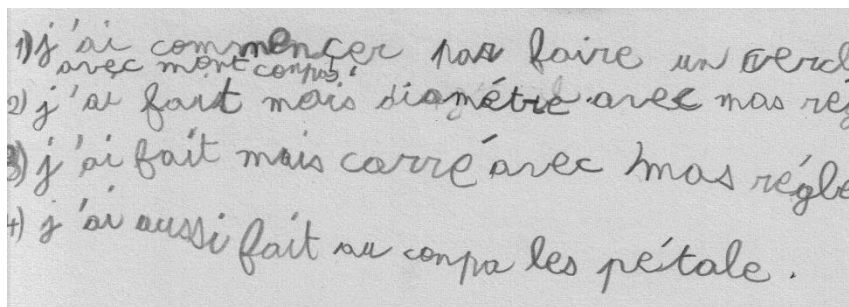 1) j'ai commencer par faire un cercl
avec mort conpas.
2) j'ai fait mais diamétre avec mas rég
3) j'ai fait mais carré avec mas régle
4) j'ai aussi fait au conpa les pétale.